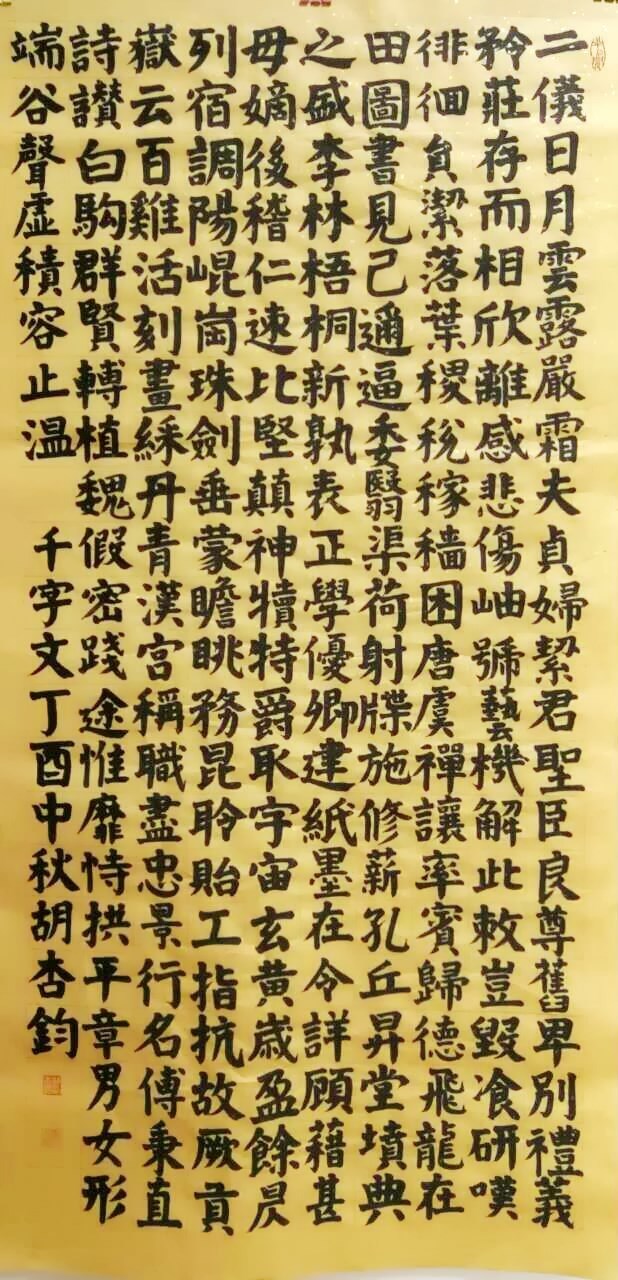 二儀日月雲露嚴霜夫貞婦絜君聖臣良尊舊卑別禮義
矜莊存而相欣離感悲傷岫號藝機解此敕豈毀飡研嘆
徘徊負潔落葉稷稅稼穡困唐虞禪讓率賓歸德飛龍在
田圖書見己邇逼委翳渠荷射牒施修薪孔丘昇堂墳典
之盛李林梧桐新孰表正學優卿建紙墨在令詳顧藉甚
毋嫡後稽仁速比堅顛神犢特爵取宇宙玄黃歲盈餘昃
列宿調陽崐崗珠劍垂蒙瞻眺務昆聆貽工指抗故厥貢
嶽云百雞活刻畫綵丹青漢宮稱職盡忠景行名傅秉直
詩讚白駒群賢轉植魏假密踐途惟靡恃拱平章男女形
端谷聲虛積容止溫
千字文丁酉中秋胡杏鈞